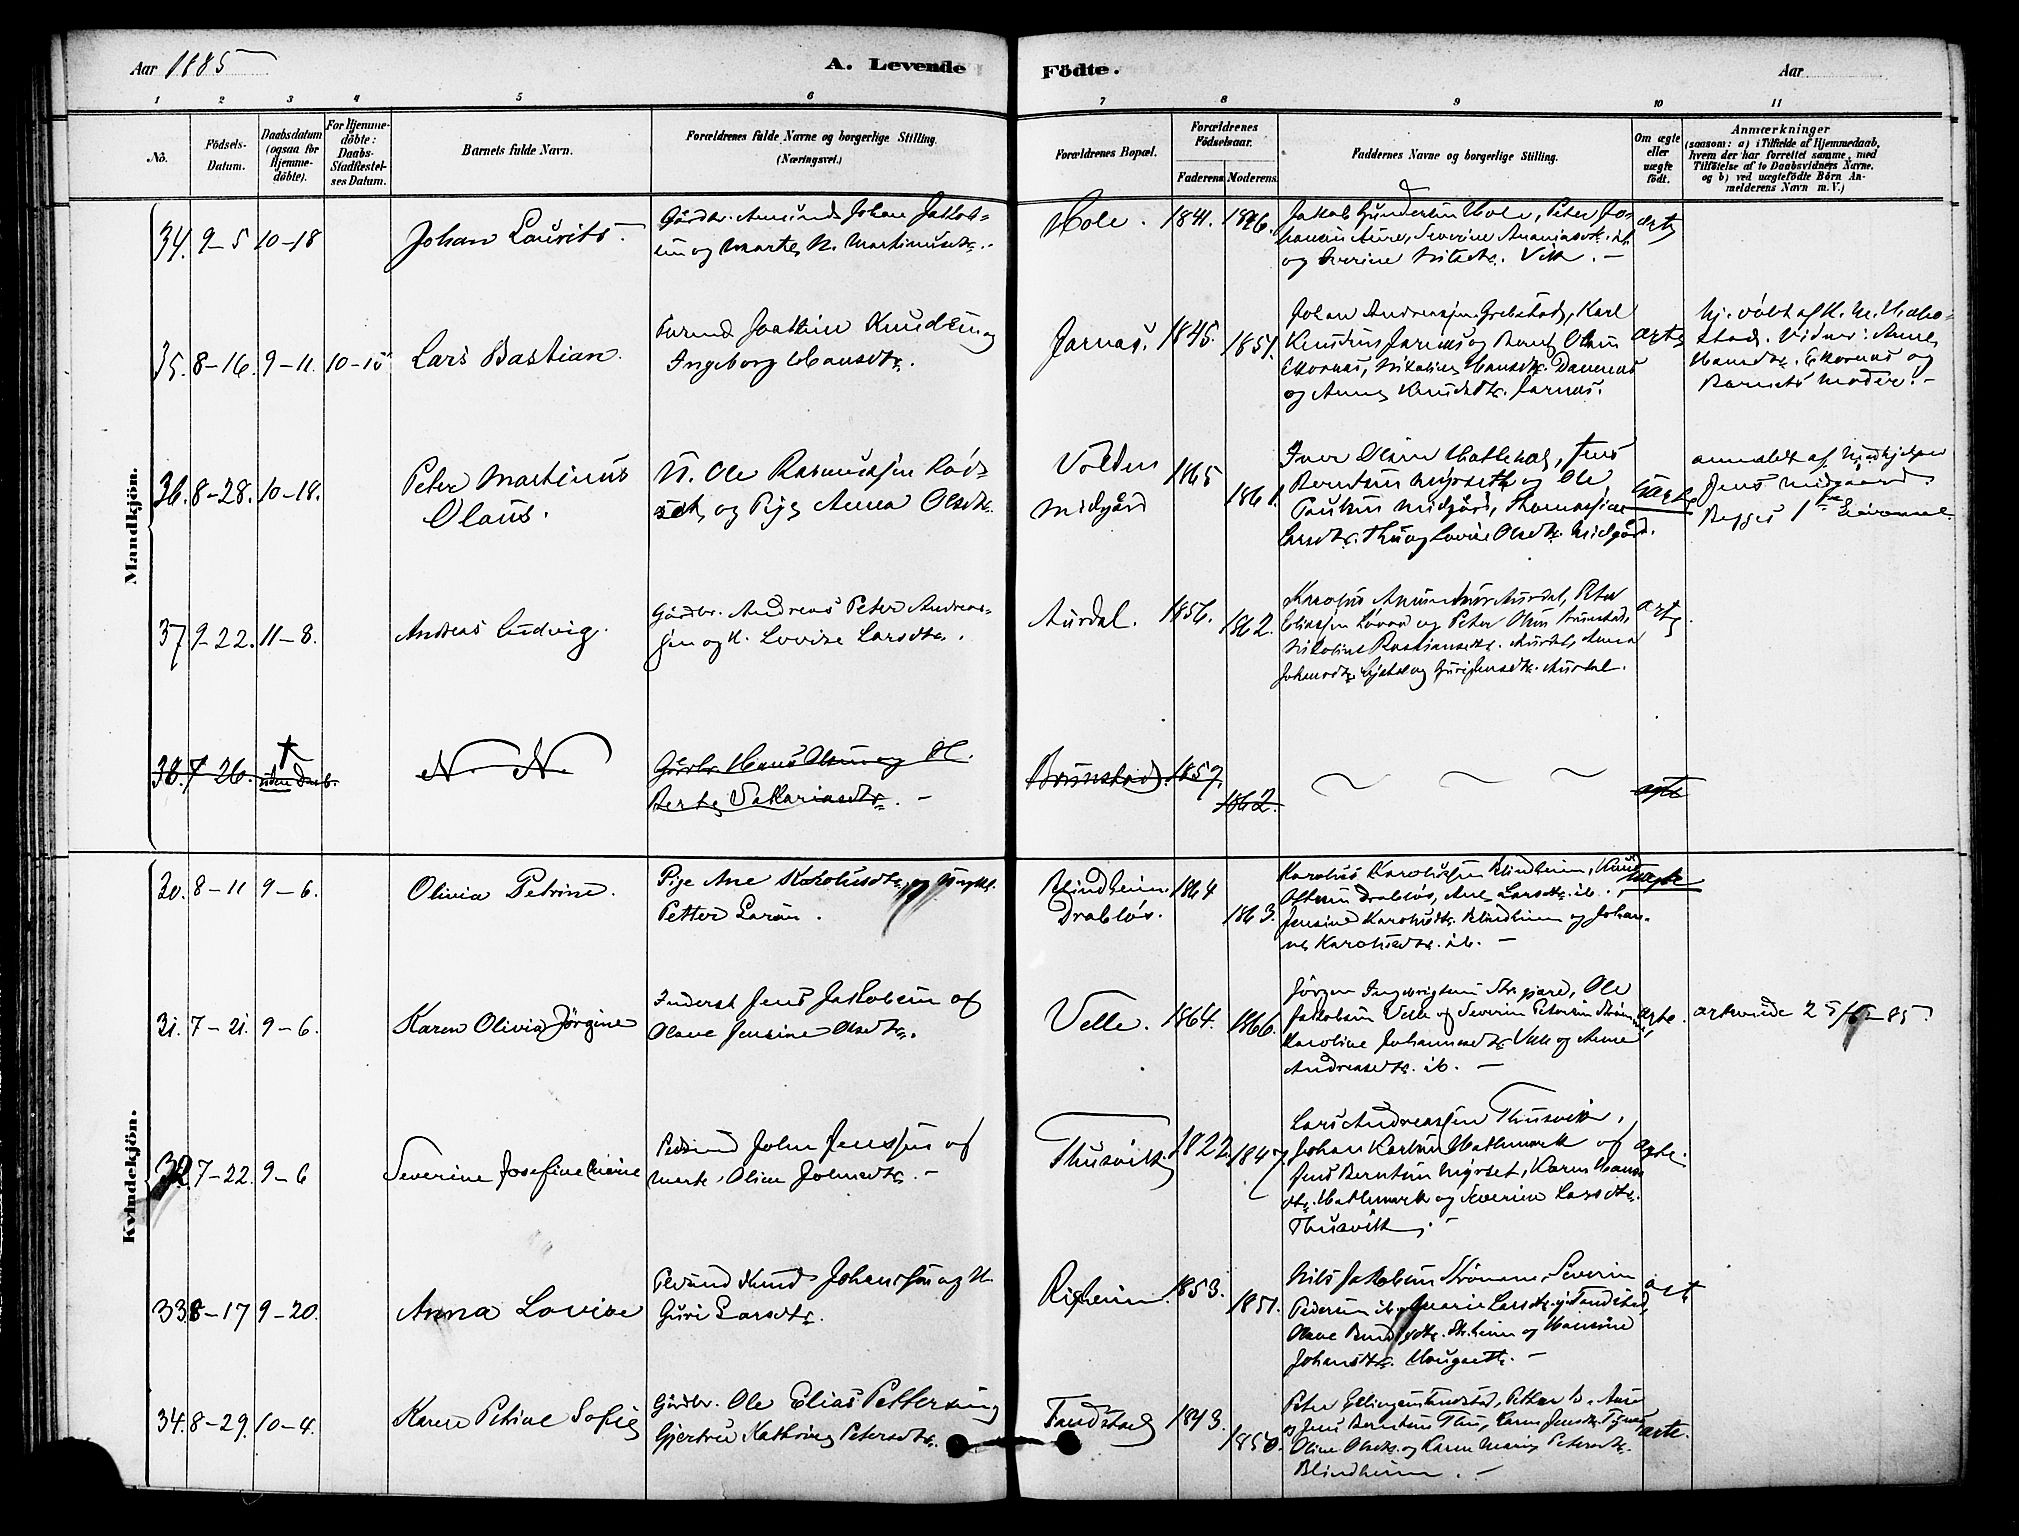 Aar 1885
A. Levende Födte.
Aar
1 2 3 4 5 6 7 8 9 10 11
No.
Födsels-Datum.
Daabsdatum (ogsaa for Hjemme-döbte).
For Hjemme-döbte: Daabs-Stadfestel-ses Datum.
Barnets fulde Navn.
Forældrenes fulde Navne og borgerlige Stilling.
(Næringsvei.)
Forældrenes Bopæl.
Forældrenes Födselsaar.
Faderens Moderens.
Faddernes Navne og borgerlige Stilling.
Om ægte eller uægte födt.
Anmærkninger
(saasom: a) i Tilfælde af Hjemmedaab, hvem der har forrettet samme, med Tilföielse af to Daabsvidners Navne. og b) ved uægtefödte Börn An-melderens Navn m. V.)
Mandkjön.
34. 9-5 10-18 Johan Laurits.
Gårdbr. Amund Johan Jakob-
sen og Marte N. Martinusdtr.
Hole. 1841. 1846.
Jakob Gundersen Hole, Peter Jo-
hansen Aure, Severine Ananiasdtr. ib.
og Severine Nilsdtr. Vik. -
ægte
35. 8-16. 9-11. 10-15 Lars Bastian.
Joakim Knudsen og
Ingeborg Hansdtr.
Jarnæs. 1845. 1851.
Johan Andreassen Grebstad, Karl
Knudsen Jarnæs og Olsen
Ekornæs, Nikoline Hansdtr.
og Anne Knudsdtr. Jarnæs.
ægte
hj. döbt af K. M.
Vidner: Anne
Hansdtr. Ekornæs og
Barnets Moder. -
36. 8-28. 10-18. Peter Martinus
Olaus.
U. Ole Rasmussen Rød-
set og Pige Anna Olsdtr.
Volden
Midgård
1865 1861.
Iver Olsen Hatlehol, Jens
Berntsen Myrseth og Ole
Paulsen Midgård, Thomasine
Larsdtr. Thu og Lovise Olsdtr. Midgård.
uægte
anmeldt af
Jens Midgaard.
Begges 1ste Leiermaal.
37 9-22. 11-8. Andreas Ludvig.
Gårdbr. Andreas Peter Andreas-
sen og H. Lovise Larsdtr.
Aurdal. 1856. 1862.
Karolus Amundsen Aurdal, Peter
Eliassen og Peter Olsen Brunstad,
Nikoline Bastiansdtr. Aurdal, Anna
Johansdtr. og Guri Jensdtr. Aurdal.
ægte
38. 7-26. † uden Daab. N. N.
Gårdbr. Hans Olsen og H.
Berte Sakariasdtr. -
Brunstad. 1857. 1862.
ægte
Kvindekjön.
30. 8-11 9-6. Olivia Petrine.
Pige Ane Karolusdtr. og Ungkl.
Petter Larsen.
Blindheim
Drabløs.
1864 1863.
Karolus Karolussen Blindheim, Knud
Drabløs, Ane Larsdtr. ib.
Jensine Karolusdtr. Blindheim og Johan-
ne Karolusdtr. ib. -
uægte
31. 7-21. 9-6. Karen Olivia Jörgine
Inderst Jens Jakobsen og
Olave Jensine Olsdtr.
Velle. 1864. 1866.
Jörgen Ingebrigtsen, Ole
Jakobsen Velle og Severin Petersen
Karoline Johannesdtr. Velle og Anne
Andreasdtr. ib. -
ægte.
ægteviede 25/-85
32. 7-22. 9-6 Severine Josefine
John Jenssen og
Oline Johnsdtr. -
Thusvik 1822. 1847.
Lars Andreassen Thusvik,
Johan Karlsen Hatlemark og
Jens Berntsen Myrset, Karen Hans-
dtr. Hatlemark og Severine Larsdtr.
Thusvik. -
ægte.
33. 8-17 9-20. Anna Lovise
Knud Johanssen og H.
Guri Larsdtr.
Riksheim. 1853. 1851.
Nils Jakobsen Strømme, Severin
Pedersen ib. Marie Larsdtr. Tandstad,
Olave og Hansine
Johansdtr. Haugset. -
ægt
34. 8-29. 10-4. Karen Petrine Sofie
Gårdbr. Ole Elias Pettersen og
Gjertru Kathrine Petersdtr.
Tandstad 1843. 1850.
Peter Ellingsen Tandstad, Petter
og Jens Berntsen Thu, Karen Jensdtr.
Oline Olsdtr. og Karen Marie Petersdtr.
Blindheim. -
ægte.